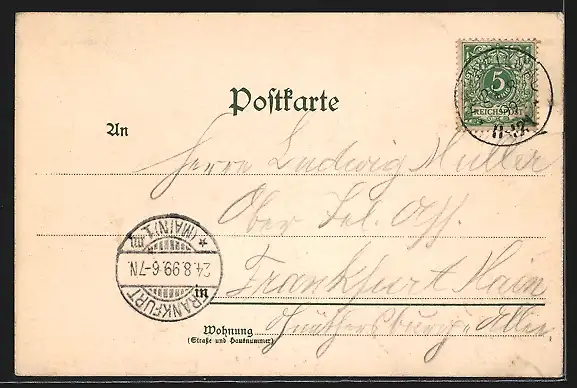 Postkarte
5
REICHSPOST
An
Herrn Ludwig Müller
Ober Tel. Ass.
Frankfurt Main
FRANKFURT
(MAIN) 1.
24.8.99.6-7N.
Wohnung
(Straße und Hausnummer)
Günthersburg Allee